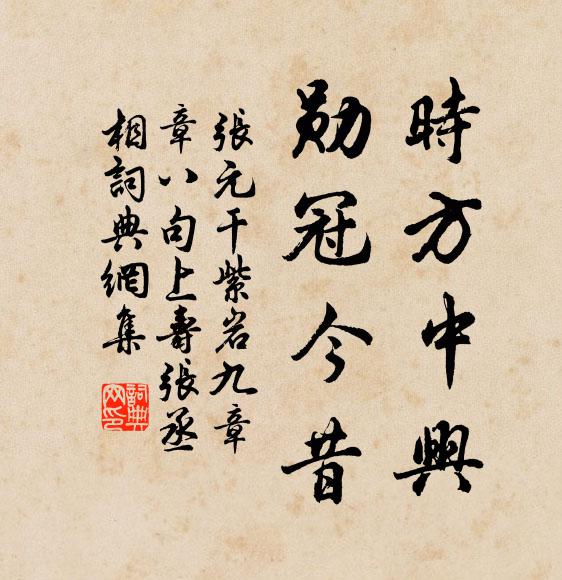 時方中興
勛冠今昔
張元干紫岩九章
章八句上壽張丞
相詞典網集
詞典
网印